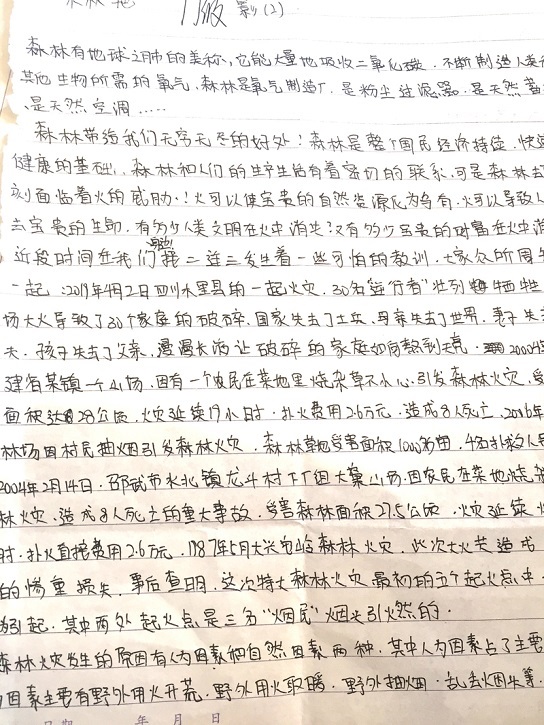 级
森林有地球之肺的美称,它能大量地吸收二氧化碳,不断制造人类
其他生物所需的氧气,森林是氧气制造厂,是粉尘过滤器,是天然
、是天然空调……
森林带给我们无穷无尽的好处!森林是整个国民经济持续、快
健康的基础,森林和人们的生产生活有着密切的联系,可是森林
刻面临着火的威胁!火可以使宝贵的自然资源化为乌有,火可以导致人
去宝贵的生命,有多少人类文明在火中消失?又有多少宝贵的财富在火中消
近段时间在我们身边接二连三发生着一些可怕的教训,大家众所周
一起:2019年4月2日四川木里县的一起火灾,30名"逆行者"壮烈牺牲
场大火导致了30个家庭的破碎,国家失去了士兵、母亲失去了世界、妻子失
夫、孩子失去了父亲,漫漫长夜让破碎的家庭如何熬到天亮,2004
建省某镇一个山场,因有一个农民在菜地里烧杂草不小心,引发森林火灾,受
面积达28公顷,火灾延续19小时,扑火费用2.6万元,造成8人死亡,2016年
林场因村民抽烟引发森林火灾,森林草地受害面积1000多亩,4名扑救人员
2004年2月14日,邵武市水北镇龙斗村下厂组大窠山场,因农民在菜地烧
林火灾,造成8人死亡的重大事故,受害森林面积27.5公顷,火灾延续
时,扑火直接费用2.6万元,1987年5月大兴安岭森林火灾,此次大火共造成
的惨重损失,事后查明,这次特大森林火灾最初的五个起火点中,
为引起,其中两处起火点是三名"烟民"烟头引燃的。
森林火灾发生的原因有人为因素和自然因素两种,其中人为因素占了主要
因素主要有野外用火开荒、野外用火取暖、野外抽烟、乱丢烟头等。
日期 年 月 日